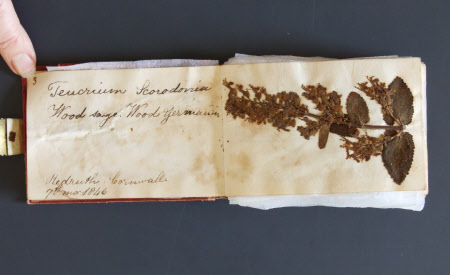 5
Teucrium Scorodonia
Wood sage. Wood Germander
Redruth. Cornwall
mo. 1846